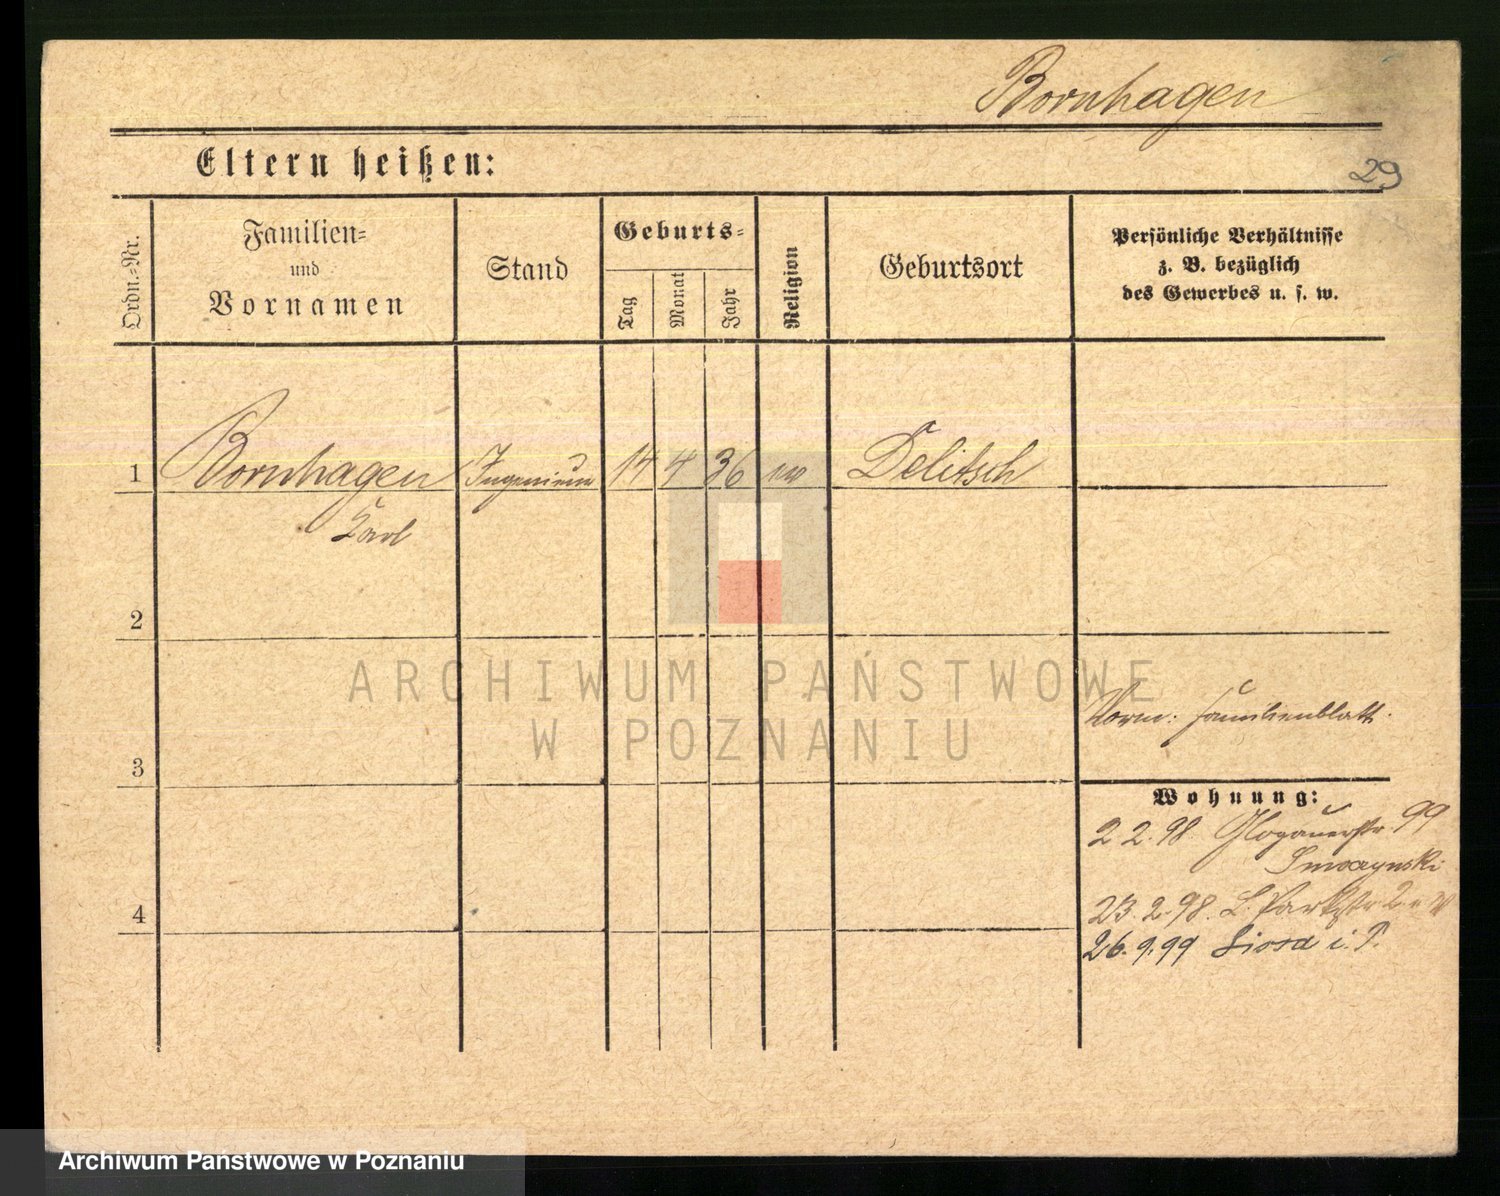 Bornhagen
Eltern heißen:
29
Ordn.-Nr.
Familien-
und
Vornamen
Stand
Geburts-
Tag
Monat
Jahr
Religion
Geburtsort
Persönliche Verhältnisse
z. B. bezüglich
des Gewerbes u. s. w.
1 Bornhagen Ingenieur 14 4 36 ev Delitsch
Karl
2
ARCHIWUM PAŃSTWOWE
W POZNANIU
Norm: Familienblatt.
3
Wohnung:
2. 2. 98. Glogauerstr. 99
Smoczynski
4
23. 2. 98. L. Parkstr. 2
26. 9. 99 i. P.
Archiwum Państwowe w Poznaniu